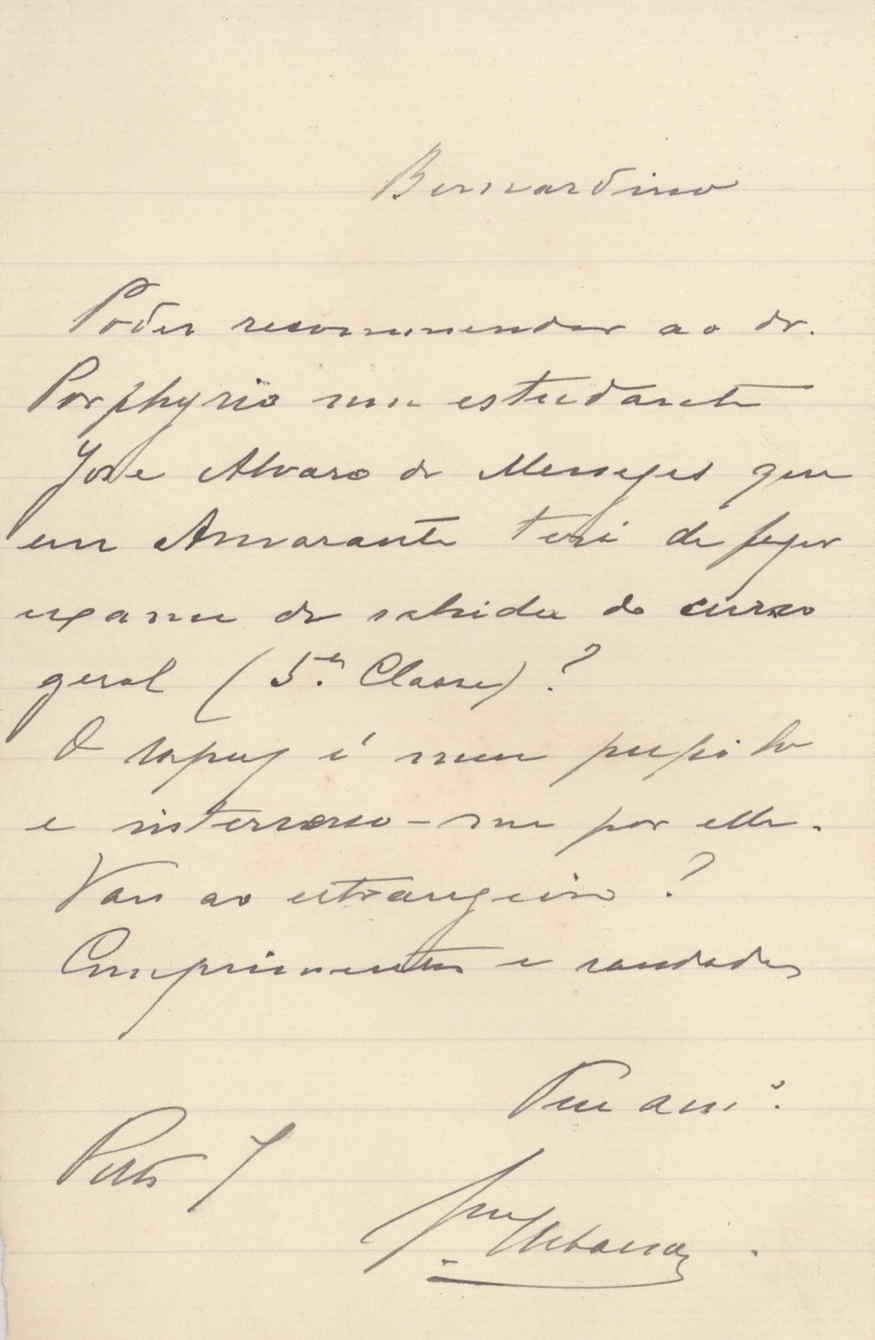 Bernardino
Podes recommendar ao dr.
Porphyrio um estudante
José Alvaro de Menezes que
em Amarante terá de fazer
exame de sahida do curso
geral (5.ª Classe)?
O rapaz é meu pupilo
e interesso-me por elle.
Vaes ao estrangeiro?
Cumprimentos e saudades
Teu am.º
Porto 7